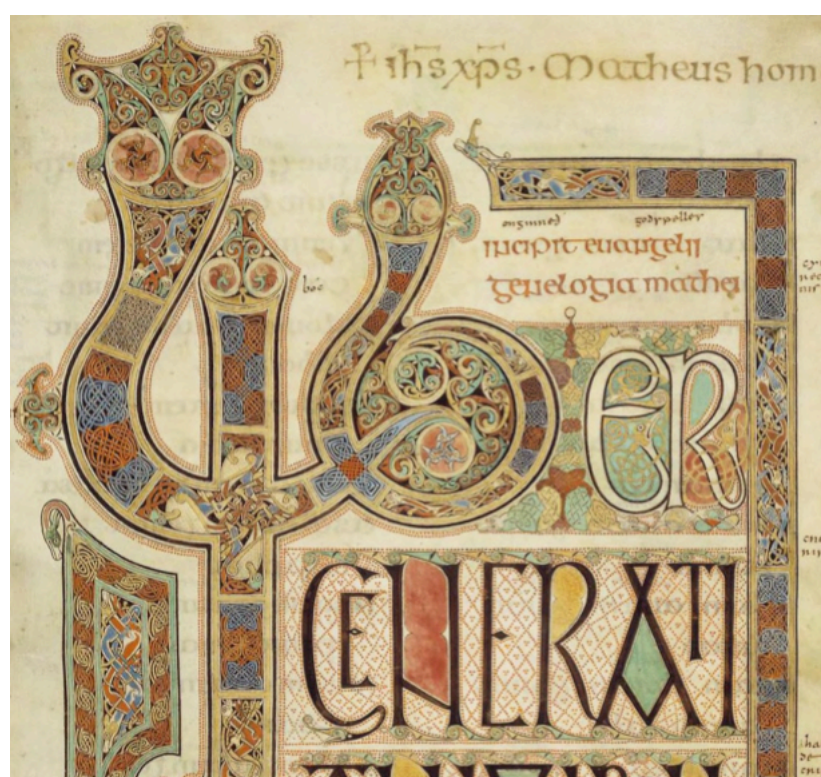 ihs xps · Matheus hom
onginneð godspelles
incipit euangelii
genelogia mathei
boc
LIBER
GENERATI